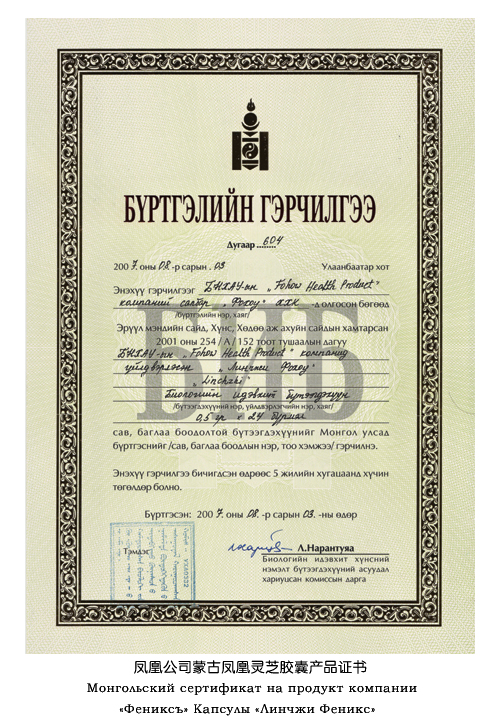 БҮРТГЭЛИЙН ГЭРЧИЛГЭЭ
Дугаар ...604
2007. оны 08 -р сарын . 03 Улаанбаатар хот
Энэхүү гэрчилгээг БНХАУ-ын „Fohow Health Product"
компаний салбар „Фохоу" ХХК -д олгосон бөгөөд
/бүртгэлийн нэр, хаяг/
Эрүүл мэндийн сайд, Хүнс, Хөдөө аж ахуйн сайдын хамтарсан
2001 оны 254 / А / 152 тоот тушаалын дагуу
БНХАУ-ын „Fohow Health Product" компанид
үйлдвэрлэсэн „Линчжи Фохоу"
„Linchzhi"
Биологийн идэвхит бүтээгдэхүүн
/бүтээгдэхүүний нэр, үйлдвэрлэгчийн нэр, хаяг/
0,5 гр × 24
сав, баглаа боодолтой бүтээгдэхүүнийг Монгол улсад
бүртгэснийг /сав, баглаа боодлын нэр, тоо хэмжээ/ гэрчилнэ.
Энэхүү гэрчилгээ бичигдсэн өдрөөс 5 жилийн хугацаанд хүчин
төгөлдөр болно.
Бүртгэсэн: 2007. оны 08. -р сарын 03. -ны өдөр
Тэмдэг
Л.Нарантуяа
Биологийн идэвхит хүнсний
нэмэлт бүтээгдэхүүний асуудал
хариуцсан комиссын дарга
凤凰公司蒙古凤凰灵芝胶囊产品证书
Монгольский сертификат на продукт компании
«Фениксъ» Капсулы «Линчжи Феникс»